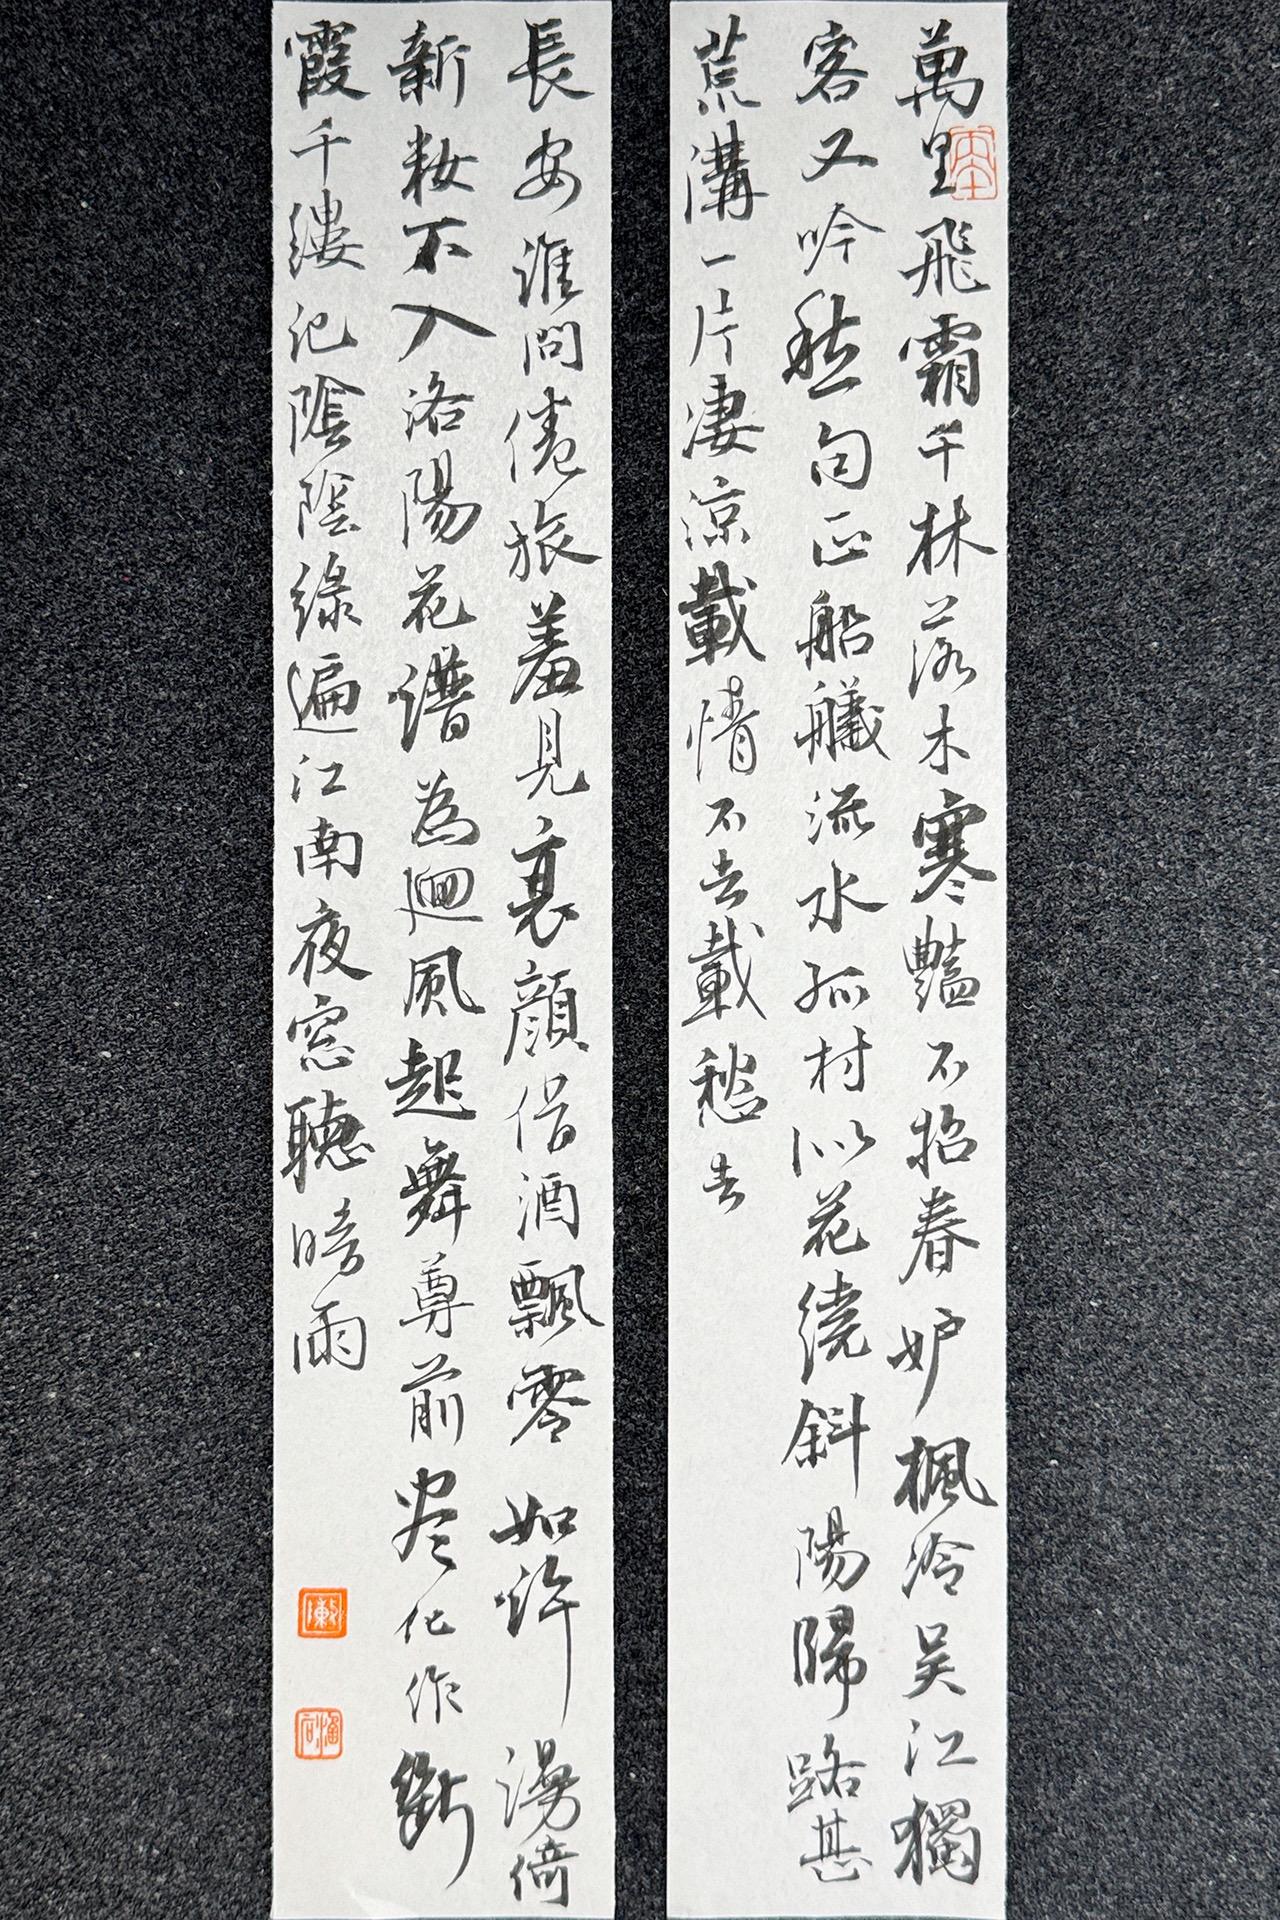 萬里飛霜千林落木寒豔不招春妒楓冷吳江獨
客又吟愁句正船艤流水孤村似花繞斜陽歸路甚
荒溝一片淒涼載情不去載愁去
長安誰問倦旅羞見衰顏借酒飄零如許謾倚
新籹不入洛陽花譜為迴風起舞尊前尽化作斷
霞千縷記陰陰綠遍江南夜窓聽暗雨